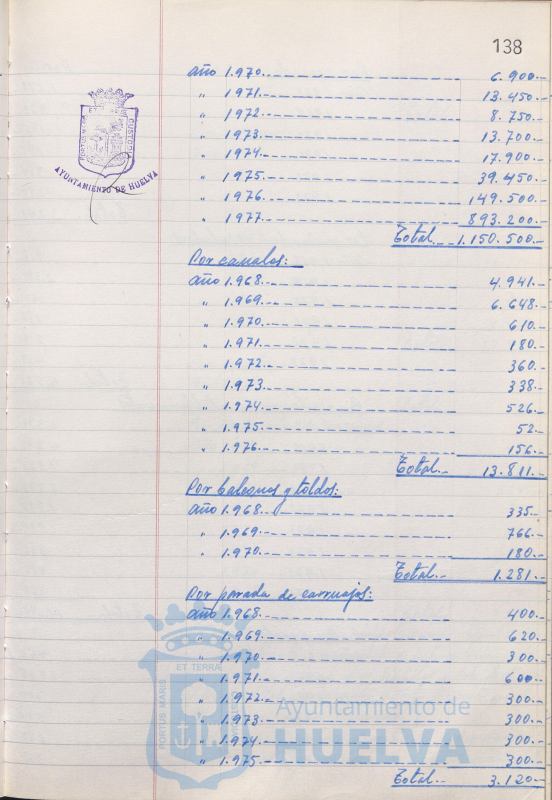 138
año 1.970.- 6.900.-
" 1971.- 13.450.-
" 1972.- 8.750.-
" 1973.- 13.700.-
" 1974.- 17.900.-
" 1975.- 39.450.-
" 1976.- 149.500.-
" 1977.- 893.200.-
Total.- 1.150.500.-
Por canales:
año 1.968.- 4.941.-
" 1.969.- 6.648.-
" 1.970.- 610.-
" 1.971.- 180.-
" 1.972.- 360.-
" 1.973.- 338.-
" 1.974.- 526.-
" 1.975.- 52.-
" 1.976.- 156.-
Total.- 13.811.-
Por balcones y toldos:
año 1.968.- 335.-
" 1.969.- 766.-
" 1.970.- 180.-
Total.- 1.281.-
Por parada de carruajes:
año 1.968.- 400.-
" 1.969.- 620.-
" 1.970.- 300.-
" 1.971.- 600.-
" 1.972.- 300.-
" 1.973.- 300.-
" 1.974.- 300.-
" 1.975.- 300.-
Total.- 3.120.-
AYUNTAMIENTO DE HUELVA
PORTUS MARIS
ET TERRAE
Ayuntamiento de
HUELVA